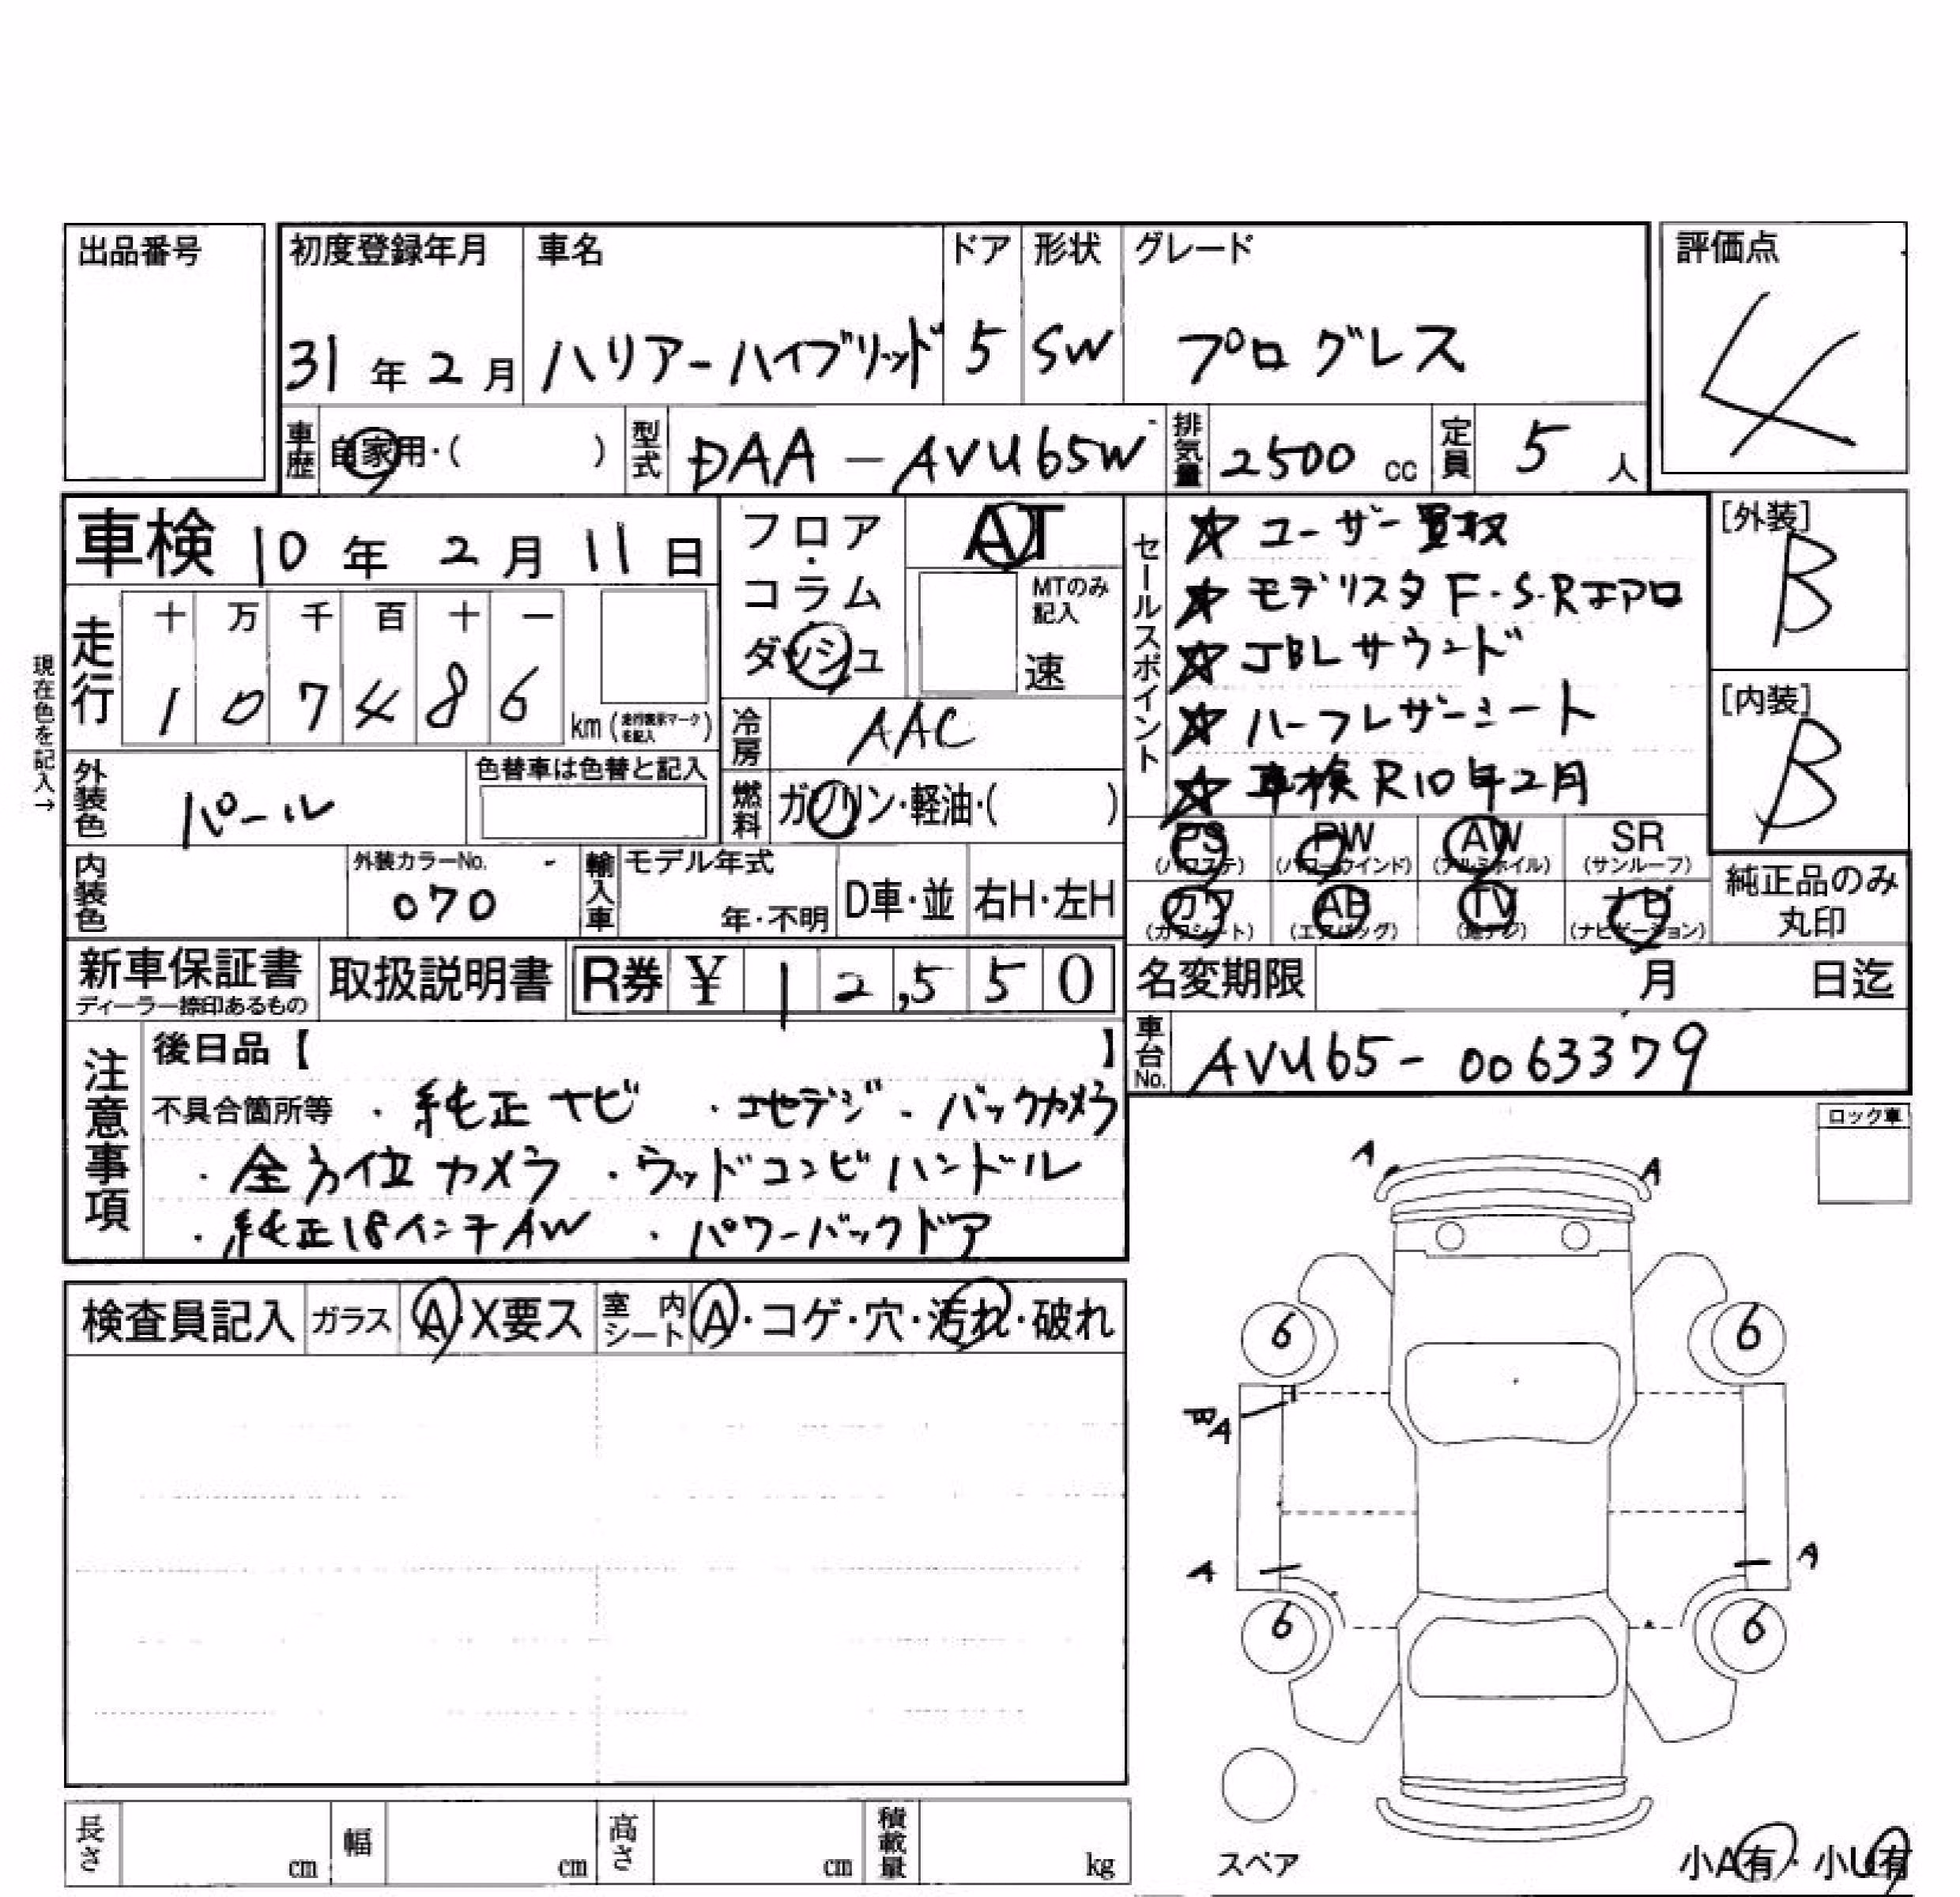 出品番号
初度登録年月 車名 ドア 形状 グレード 評価点
31年2月 ハリアーハイブリッド 5 SW プログレス 4
車歴 自家用・( ) 型式 DAA-AVU65W 排気量 2500 cc 定員 5人
車検 10年2月11日
フロア・コラム ダッシュ
AT
MTのみ記入
速
セールスポイント
☆ ユーザー買取
☆ モデリスタ F・S・Rエアロ
☆ JBLサウンド
☆ ハーフレザーシート
☆ 車検R10年2月
[外装] B
[内装] B
現在色を記入→
走行 十 万 千 百 十 一
1 0 7 4 8 6 km (走行表示マークを記入)
冷房 AAC
外装色 パール 色替車は色替と記入
燃料 ガソリン・軽油・( )
PS (パワステ) PW (パワーウインド) AW (アルミホイル) SR (サンルーフ)
カワ (カワシート) AB (エアバッグ) TV (地デジ) ナビ (ナビゲーション)
純正品のみ丸印
内装色 外装カラーNo. 070 輸入車 モデル年式 年・不明 D車・並 右H・左H
新車保証書 ディーラー捺印あるもの 取扱説明書 R券 ¥ 12,550
名変期限 月 日迄
車台No. AVU65-0063379
注意事項
後日品【 】
不具合箇所等 ・純正ナビ ・地デジ ・バックカメラ
・全方位カメラ ・ウッドコンビハンドル
・純正18インチAW ・パワーバックドア
ロック車
検査員記入 ガラス A・X要ス 室内シート A・コゲ・穴・汚れ・破れ
A A
6 6
BA
A A
6 6
スペア
小A有・小U有
長さ cm 幅 cm 高さ cm 積載量 kg